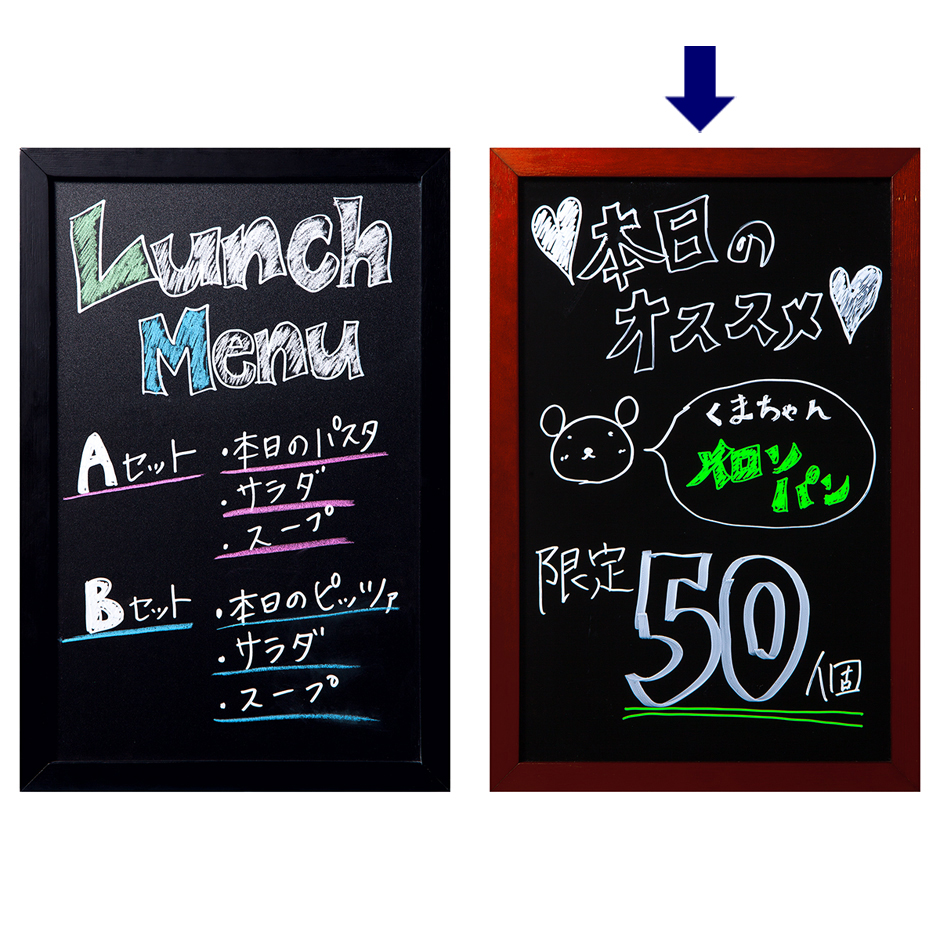 Lunch
Menu
Aセット
・本日のパスタ
・サラダ
・スープ
Bセット
・本日のピッツァ
・サラダ
・スープ
本日の
オススメ
くまちゃん
メロン
パン
限定50個